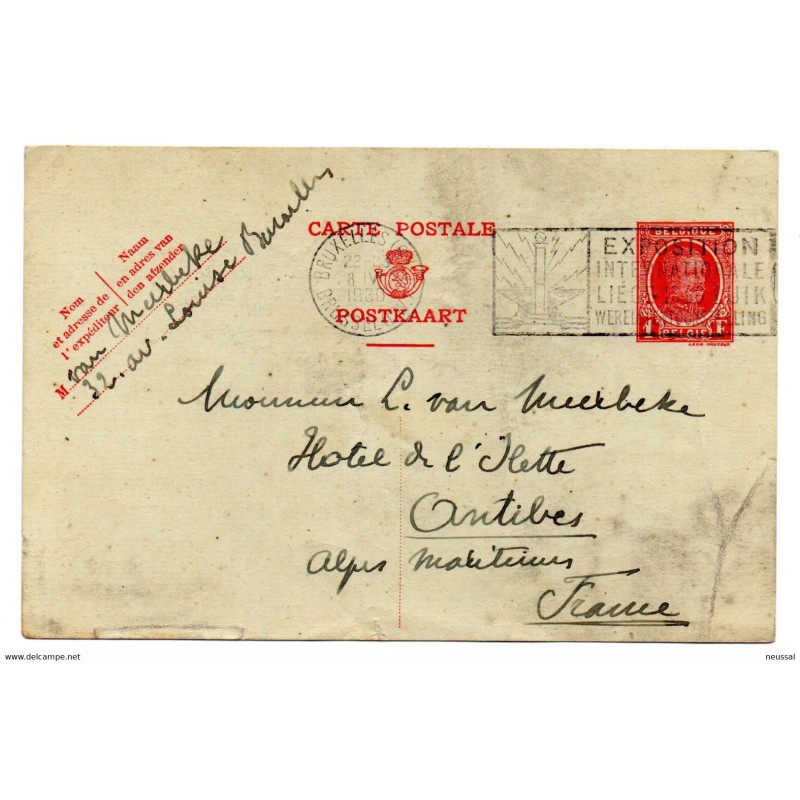 Nom
et adresse de
l'expéditeur
Naam
en adres van
den afzender
M van Meerbeke
32. av. Louise Bruxelles
CARTE POSTALE
POSTKAART
BRUXELLES
22
8 IV
1930
BRUSSEL
EXPOSITION
INTERNATIONALE
LIÉGE LUIK
WERELDTENTOONSTELLING
BELGIQUE
1 F
BELGIË
Monsieur L. van Meerbeke
Hotel de l'Ilette
Antibes
Alpes Maritimes
France
www.delcampe.net
neussal